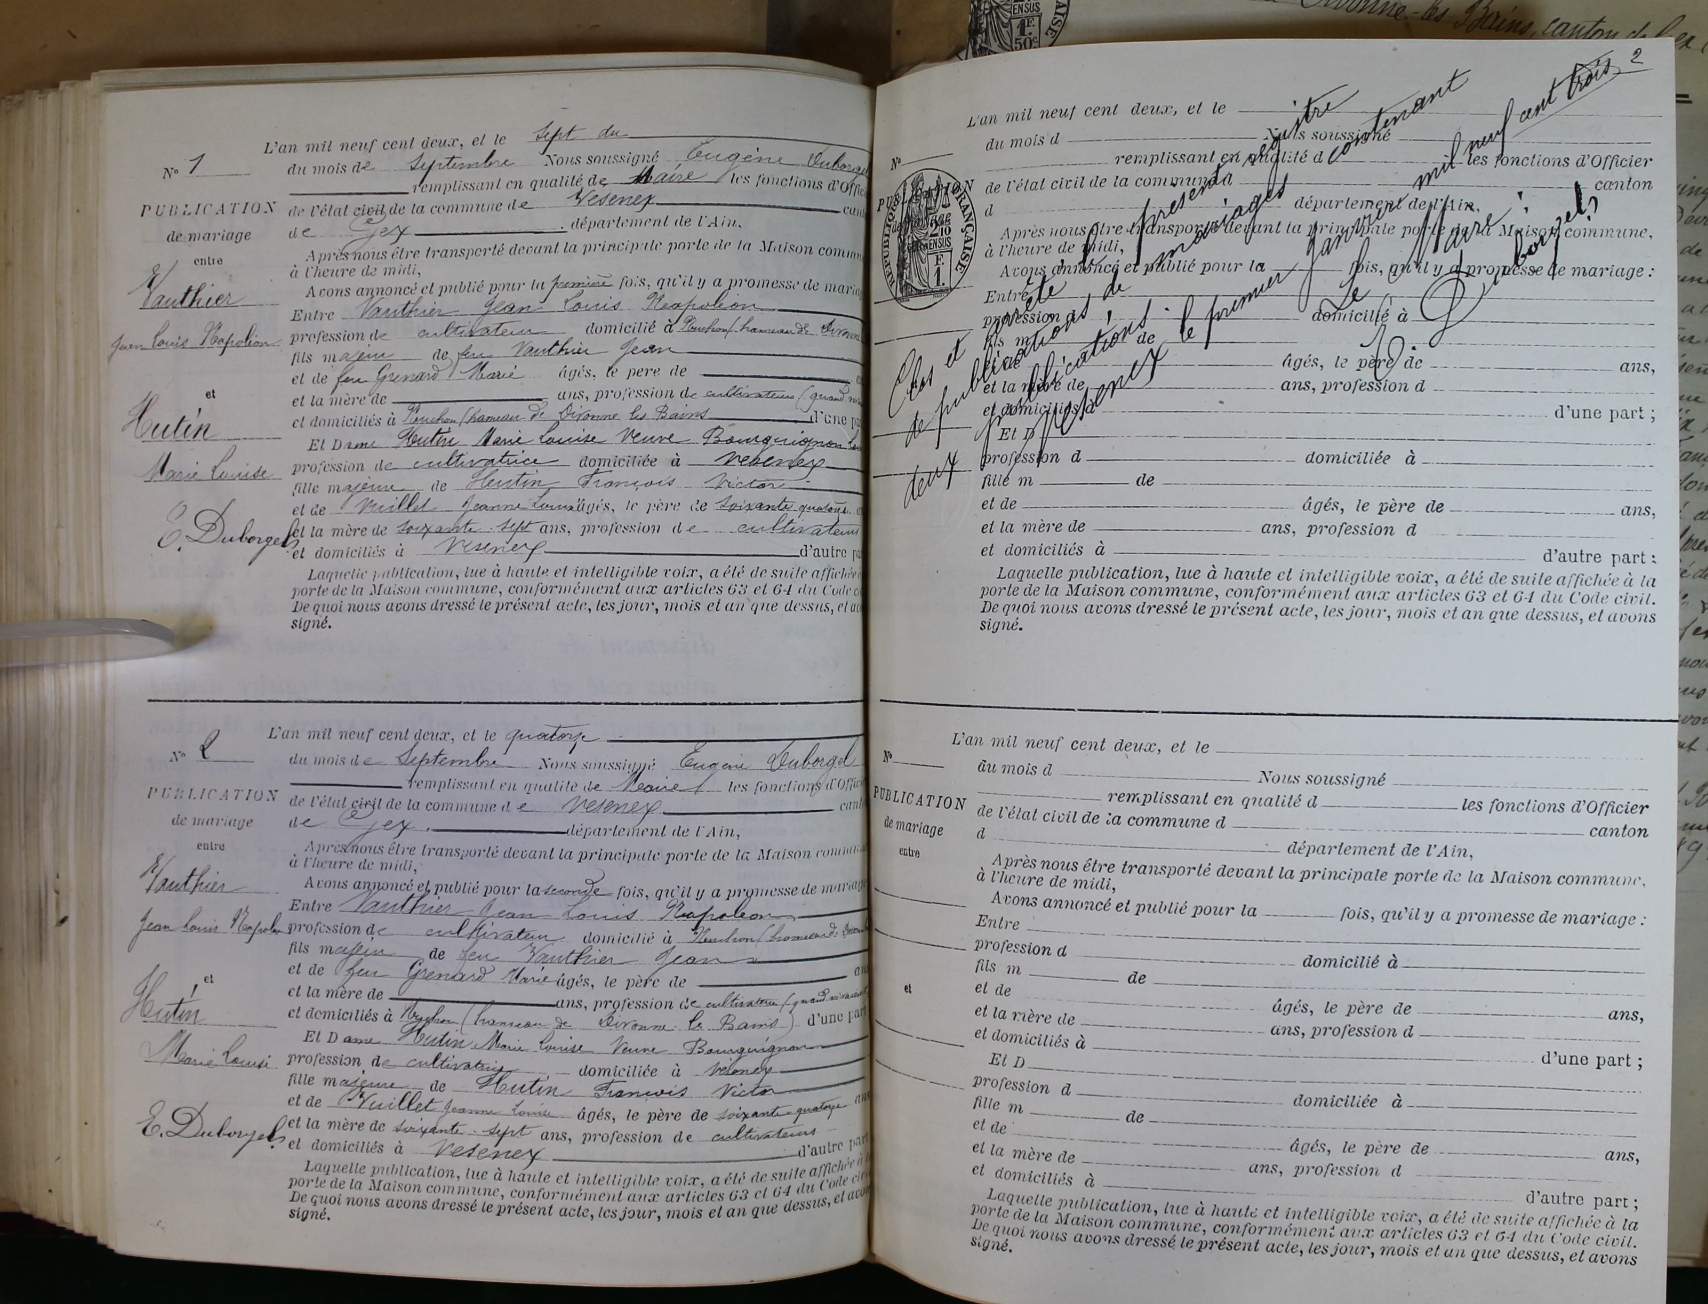 L'an mil neuf cent deux, et le sept du
No 1
du mois de Septembre Nous soussigné Eugène Duborgel
remplissant en qualité de Maire les fonctions d'Offic
PUBLICATION
de mariage
entre
Vauthier
Jean Louis Napoléon
et
Hutin
Marie Louise
E. Duborgel
de l'état civil de la commune de Vesenex cant
de Gex département de l'Ain,
Après nous être transporté devant la principale porte de la Maison commun
à l'heure de midi,
Avons annoncé et publié pour la première fois, qu'il y a promesse de maria
Entre Vauthier Jean Louis Napoléon
profession de cultivateur domicilié à (hameau de Divonne
fils majeur de feu Vauthier Jean
et de feu Grenard Marie âgés, le père de
et la mère de ans, profession de cultivateurs (quand
et domiciliés à (hameau de Divonne les Bains d'une pa
Et Dame Hutin Marie Louise Veuve Bourguignon
profession de cultivatrice domiciliée à Vesenex
fille majeure de Hutin François Victor
et de Vuillet Jeanne Louise âgés, le père de soixante quatorze
et la mère de soixante-sept ans, profession de cultivateurs
et domiciliés à Vesenex d'autre pa
Laquelle publication, lue à haute et intelligible voix, a été de suite affichée
porte de la Maison commune, conformément aux articles 63 et 64 du Code c
De quoi nous avons dressé le présent acte, les jour, mois et an que dessus, et av
signé.
L'an mil neuf cent deux, et le quatorze
No 2
du mois de Septembre Nous soussigné Eugène Duborgel
remplissant en qualité de Maire les fonctions d'Offici
PUBLICATION
de mariage
entre
Vauthier
Jean Louis Napoléon
et
Hutin
Marie Louise
E. Duborgel
de l'état civil de la commune de Vesenex cant
de Gex département de l'Ain,
Après nous être transporté devant la principale porte de la Maison commun
à l'heure de midi,
Avons annoncé et publié pour la seconde fois, qu'il y a promesse de mariag
Entre Vauthier Jean Louis Napoléon
profession de cultivateur domicilié à (hameau de
fils majeur de feu Vauthier Jean
et de feu Grenard Marie âgés, le père de ans
et la mère de ans, profession de cultivateurs (quand vivaient
et domiciliés à (hameau de Divonne les Bains) d'une part
Et Dame Hutin Marie Louise Veuve Bourguignon
profession de cultivatrice domiciliée à Vesenex
fille majeure de Hutin François Victor
et de Vuillet Jeanne Louise âgés, le père de soixante-quatorze ans
et la mère de soixante-sept ans, profession de cultivateurs
et domiciliés à Vesenex d'autre part
Laquelle publication, lue à haute et intelligible voix, a été de suite affichée à
porte de la Maison commune, conformément aux articles 63 et 64 du Code civ
De quoi nous avons dressé le présent acte, les jour, mois et an que dessus, et avon
signé.
2
L'an mil neuf cent deux, et le
No
du mois d Nous soussigné
remplissant en qualité d les fonctions d'Officier
PUBLICATION
RÉPUBLIQUE FRANÇAISE
2/10
EN SUS
1 F.
de l'état civil de la commune d canton
d département de l'Ain,
Après nous être transporté devant la principale porte de la Maison commune,
à l'heure de midi,
Avons annoncé et publié pour la fois, qu'il y a promesse de mariage :
Entre
profession d domicilié à
fils m de
et de âgés, le père de ans,
et la mère de ans, profession d
et domiciliés à d'une part ;
Et D
profession d domiciliée à
fille m de
et de âgés, le père de ans,
et la mère de ans, profession d
et domiciliés à d'autre part ;
Laquelle publication, lue à haute et intelligible voix, a été de suite affichée à la
porte de la Maison commune, conformément aux articles 63 et 64 du Code civil.
De quoi nous avons dressé le présent acte, les jour, mois et an que dessus, et avons
signé.
Clos et arrêté le présent registre
de publications de mariages contenant
deux publications.
Vesenex le premier Janvier mil neuf cent trois
Le Maire :
Duborgel
L'an mil neuf cent deux, et le
No
du mois d Nous soussigné
remplissant en qualité d les fonctions d'Officier
PUBLICATION
de mariage
entre
et
de l'état civil de la commune d canton
d département de l'Ain,
Après nous être transporté devant la principale porte de la Maison commune,
à l'heure de midi,
Avons annoncé et publié pour la fois, qu'il y a promesse de mariage :
Entre
profession d domicilié à
fils m de
et de âgés, le père de ans,
et la mère de ans, profession d
et domiciliés à d'une part ;
Et D
profession d domiciliée à
fille m de
et de âgés, le père de ans,
et la mère de ans, profession d
et domiciliés à d'autre part ;
Laquelle publication, lue à haute et intelligible voix, a été de suite affichée à la
porte de la Maison commune, conformément aux articles 63 et 64 du Code civil.
De quoi nous avons dressé le présent acte, les jour, mois et an que dessus, et avons
signé.
EN SUS
1 F.
50 c
Divonne-les-Bains, canton de Gex